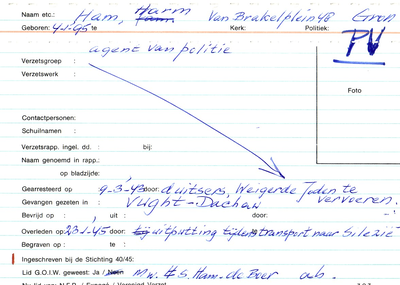 Naam etc.: Ham, Harm Van Brakelplein 48 Gron
Geboren: 4-1-95 te Kerk: Politiek:
agent van politie
PV
Verzetsgroep :
Verzetswerk :
Foto
Contactpersonen:
Schuilnamen :
Verzetsrapp. ingel. dd. : bij:
Naam genoemd in rapp.:
op bladzijde:
Gearresteerd op 9-3-43 door: duitsers, Weigerde Joden te vervoeren.
Gevangen gezeten in : Vught-Dachau
Bevrijd op : , uit : door:
Overleden op 23-1-45 door: bij uitputting tijdens transport naar Silezië
Begraven op : te :
Ingeschreven bij de Stichting 40/45:
Lid G.O.I.W. geweest: Ja / Neen Mw. H S. Ham-de Boer ab.